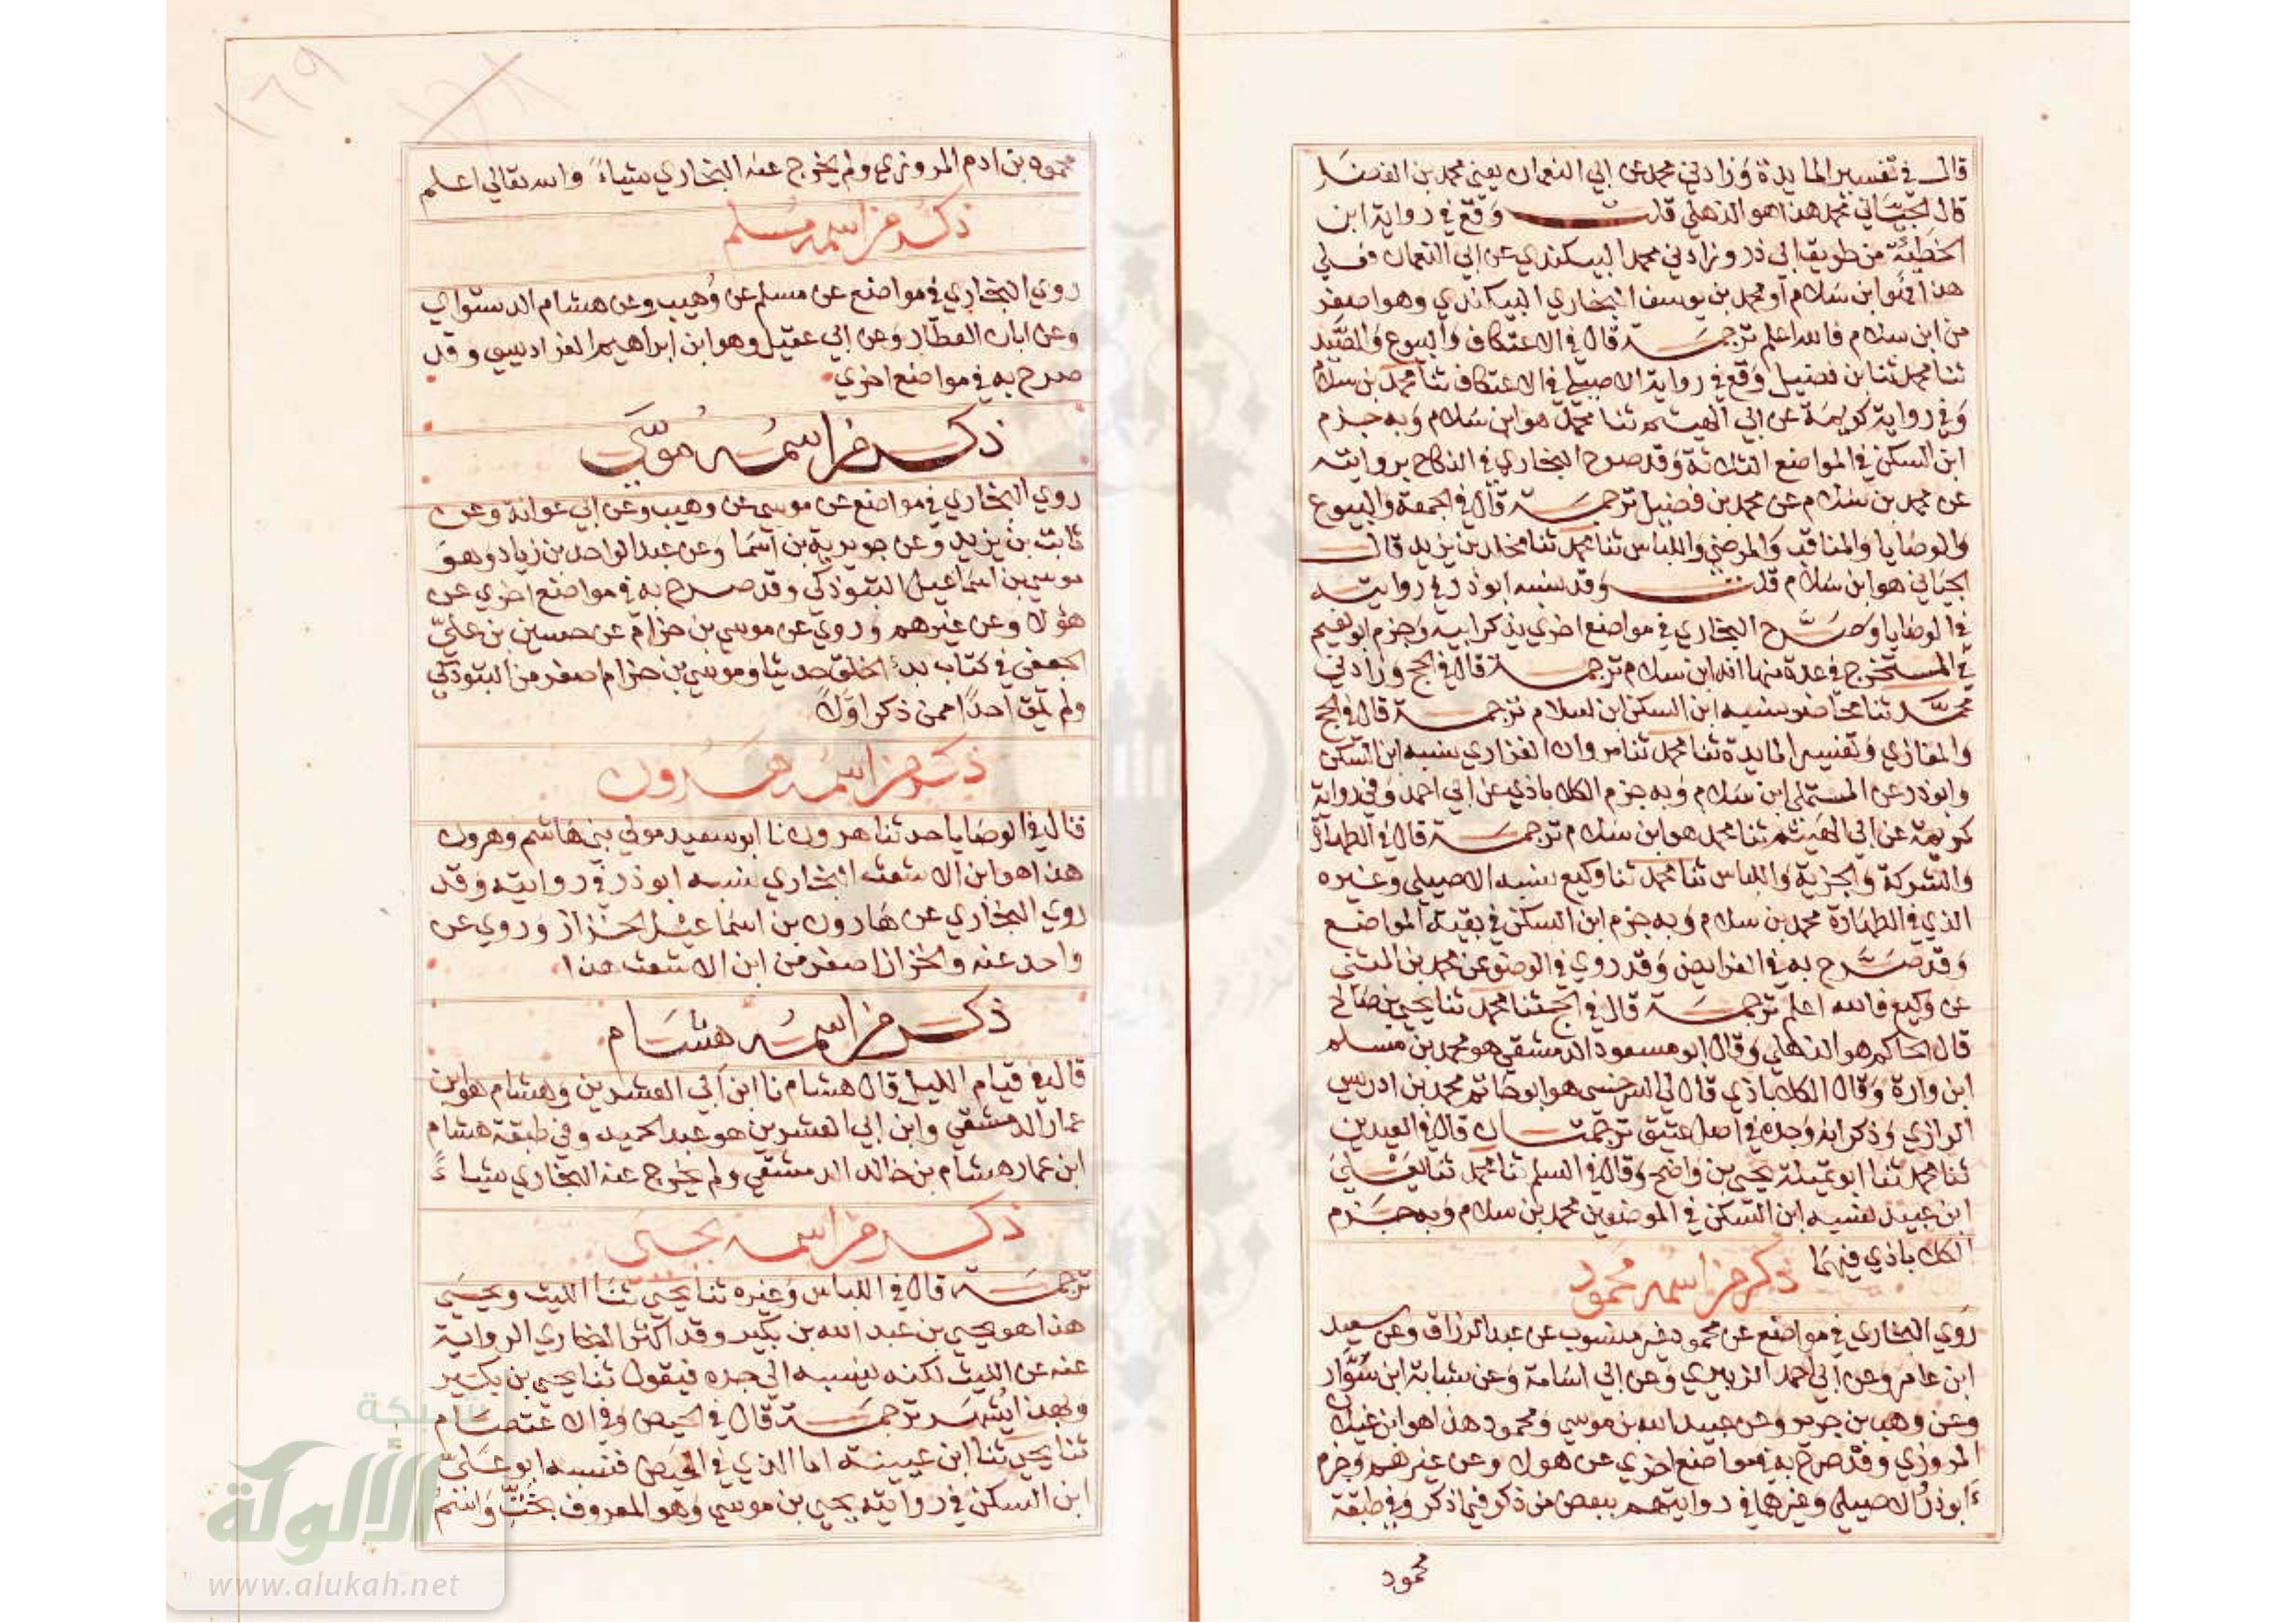 قال في تفسير المايدة وزادني محمد عن ابي النعمان يعني محمد بن الفضل
قال الجياني محمد هذا هو الذهلي قلت وقع في رواية ابن
الحطيئة من طريق ابي ذر وزادني محمد البيكندي عن ابي النعمان فعلي
هذا فهو ابن سلام او محمد بن يوسف البخاري البيكندي وهو اصغر
من ابن سلام فالله اعلم ترجمة قال في الاعتكاف والبيوع والصيد
ثنا محمد ثنا ابن فضيل وقع في رواية الاصيلي في الاعتكاف ثنا محمد بن سلام
وفي رواية كريمة عن ابي الهيثم ثنا محمد هو ابن سلام وبه جزم
ابن السكن في المواضع الثلاثة وقد صرح البخاري في النكاح بروايته
عن محمد بن سلام عن محمد بن فضيل ترجمة قال في الجمعة والبيوع
والوصايا والمناقب والمرضي واللباس ثنا محمد ثنا مخلد بن يزيد قال
الجياني هو ابن سلام قلت وقد نسبه ابو ذر في روايته
في الوصايا وصرح البخاري في مواضع اخري بذكر ابيه وجزم ابو نعيم
في المستخرج في عدة منها انه ابن سلام ترجمة قال في الحج وزادني
محمد ثنا محاضر نسبه ابن السكن ابن سلام ترجمة قال في الحج
والمغازي وتفسير المايدة ثنا محمد ثنا مروان الفزاري نسبه ابن السكن
وابو ذر عن المستملي ابن سلام وبه جزم الكلاباذي عن ابي احمد وفي رواية
كريمة عن ابي الهيثم ثنا محمد هو ابن سلام ترجمة قال في الطهارة
والشركة والجزية واللباس ثنا محمد ثنا وكيع نسبه الاصيلي وغيره
الذي في الطهارة محمد بن سلام وبه جزم ابن السكن في بقية المواضع
وقد صرح به في الفرايض وقد روي في الوضوء عن محمد بن المثني
عن وكيع فالله اعلم ترجمة قال في الحج ثنا محمد ثنا يحيي بن صالح
قال الحاكم هو الذهلي وقال ابو مسعود الدمشقي هو محمد بن مسلم
ابن وارة وقال الكلاباذي قال لي السرخسي هو ابو حاتم محمد بن ادريس
الرازي وذكر انه وجده في اصل عتيق ترجمتان قال في العيدين
ثنا محمد ثنا ابو تميلة يحيي بن واضح وقال في السلم ثنا محمد ثنا يعلي
ابن عبيد نسبه ابن السكن في الموضعين محمد بن سلام وبه جزم
الكلاباذي فيهما
ذكر من اسمه محمود
روي البخاري في مواضع عن محمود غير منسوب عن عبد الرزاق وعن سعيد
ابن عامر وعن ابي احمد الزبيري وعن ابي اسامة وعن شبابة ابن سوار
وعن وهب بن جرير وعن عبيد الله بن موسي ومحمود هذا هو ابن غيلان
المروزي وقد صرح به في مواضع اخري عن هولا وعن غيرهم وجزم
ابو ذر الاصيلي وغيرهما في روايتهم ببعض من ذكر فيما ذكر وفي طبقة
محمود
محمود بن ادم المروزي ولم يخرج عنه البخاري شياء والله تعالي اعلم
ذكر من اسمه مسلم
روي البخاري في مواضع عن مسلم عن وهيب وعن هشام الدستوائي
وعن ابان العطار وعن ابي عقيل وهو ابن ابراهيم الفراديسي وقد
صرح به في مواضع اخري
ذكر من اسمه موسي
روي البخاري في مواضع عن موسي عن وهيب وعن ابي عوانة وعن
ثابت بن يزيد وعن جويرية بن اسما وعن عبد الواحد بن زياد وهو
موسي بن اسماعيل التبوذكي وقد صرح به في مواضع اخري عن
هؤلا وعن غيرهم وروي عن موسي بن حزام عن حسين بن علي
الجعفي في كتاب بدء الخلق حديثا وموسي بن حزام اصغر من التبوذكي
ولم يلق احدا ممن ذكر اولا
ذكر من اسمه هرون
قال في الوصايا حدثنا هرون نا ابو سعيد مولي بني هاشم وهرون
هذا هو ابن الاشعث البخاري نسبه ابو ذر في روايته وقد
روي البخاري عن هارون بن اسماعيل الخزاز وروي عن
واحد عنه والخزاز اصغر من ابن الاشعث هذا
ذكر من اسمه هشام
قال في قيام الليل قال هشام نا ابن ابي العشرين وهشام هو ابن
عمار الدمشقي وابن ابي العشرين هو عبد الحميد وفي طبقة هشام
ابن عمار هشام بن خالد الدمشقي ولم يخرج عنه البخاري شياء
ذكر من اسمه يحيي
ترجمة قال في اللباس وغيره ثنا يحيي ثنا الليث ويحيي
هذا هو يحيي بن عبد الله بن بكير وقد اكثر البخاري الرواية
عنه عن الليث لكنه ينسبه الي جده فيقول ثنا يحيي بن بكير
وبهذا يشهر ترجمة قال في الحيض وفي الاعتصام
ثنا يحيي ثنا ابن عيينة اما الذي في الحيض فنسبه ابو علي
ابن السكن في روايته يحيي بن موسي وهو المعروف بخت واسم
شبكة
الألولة
www.alukah.net